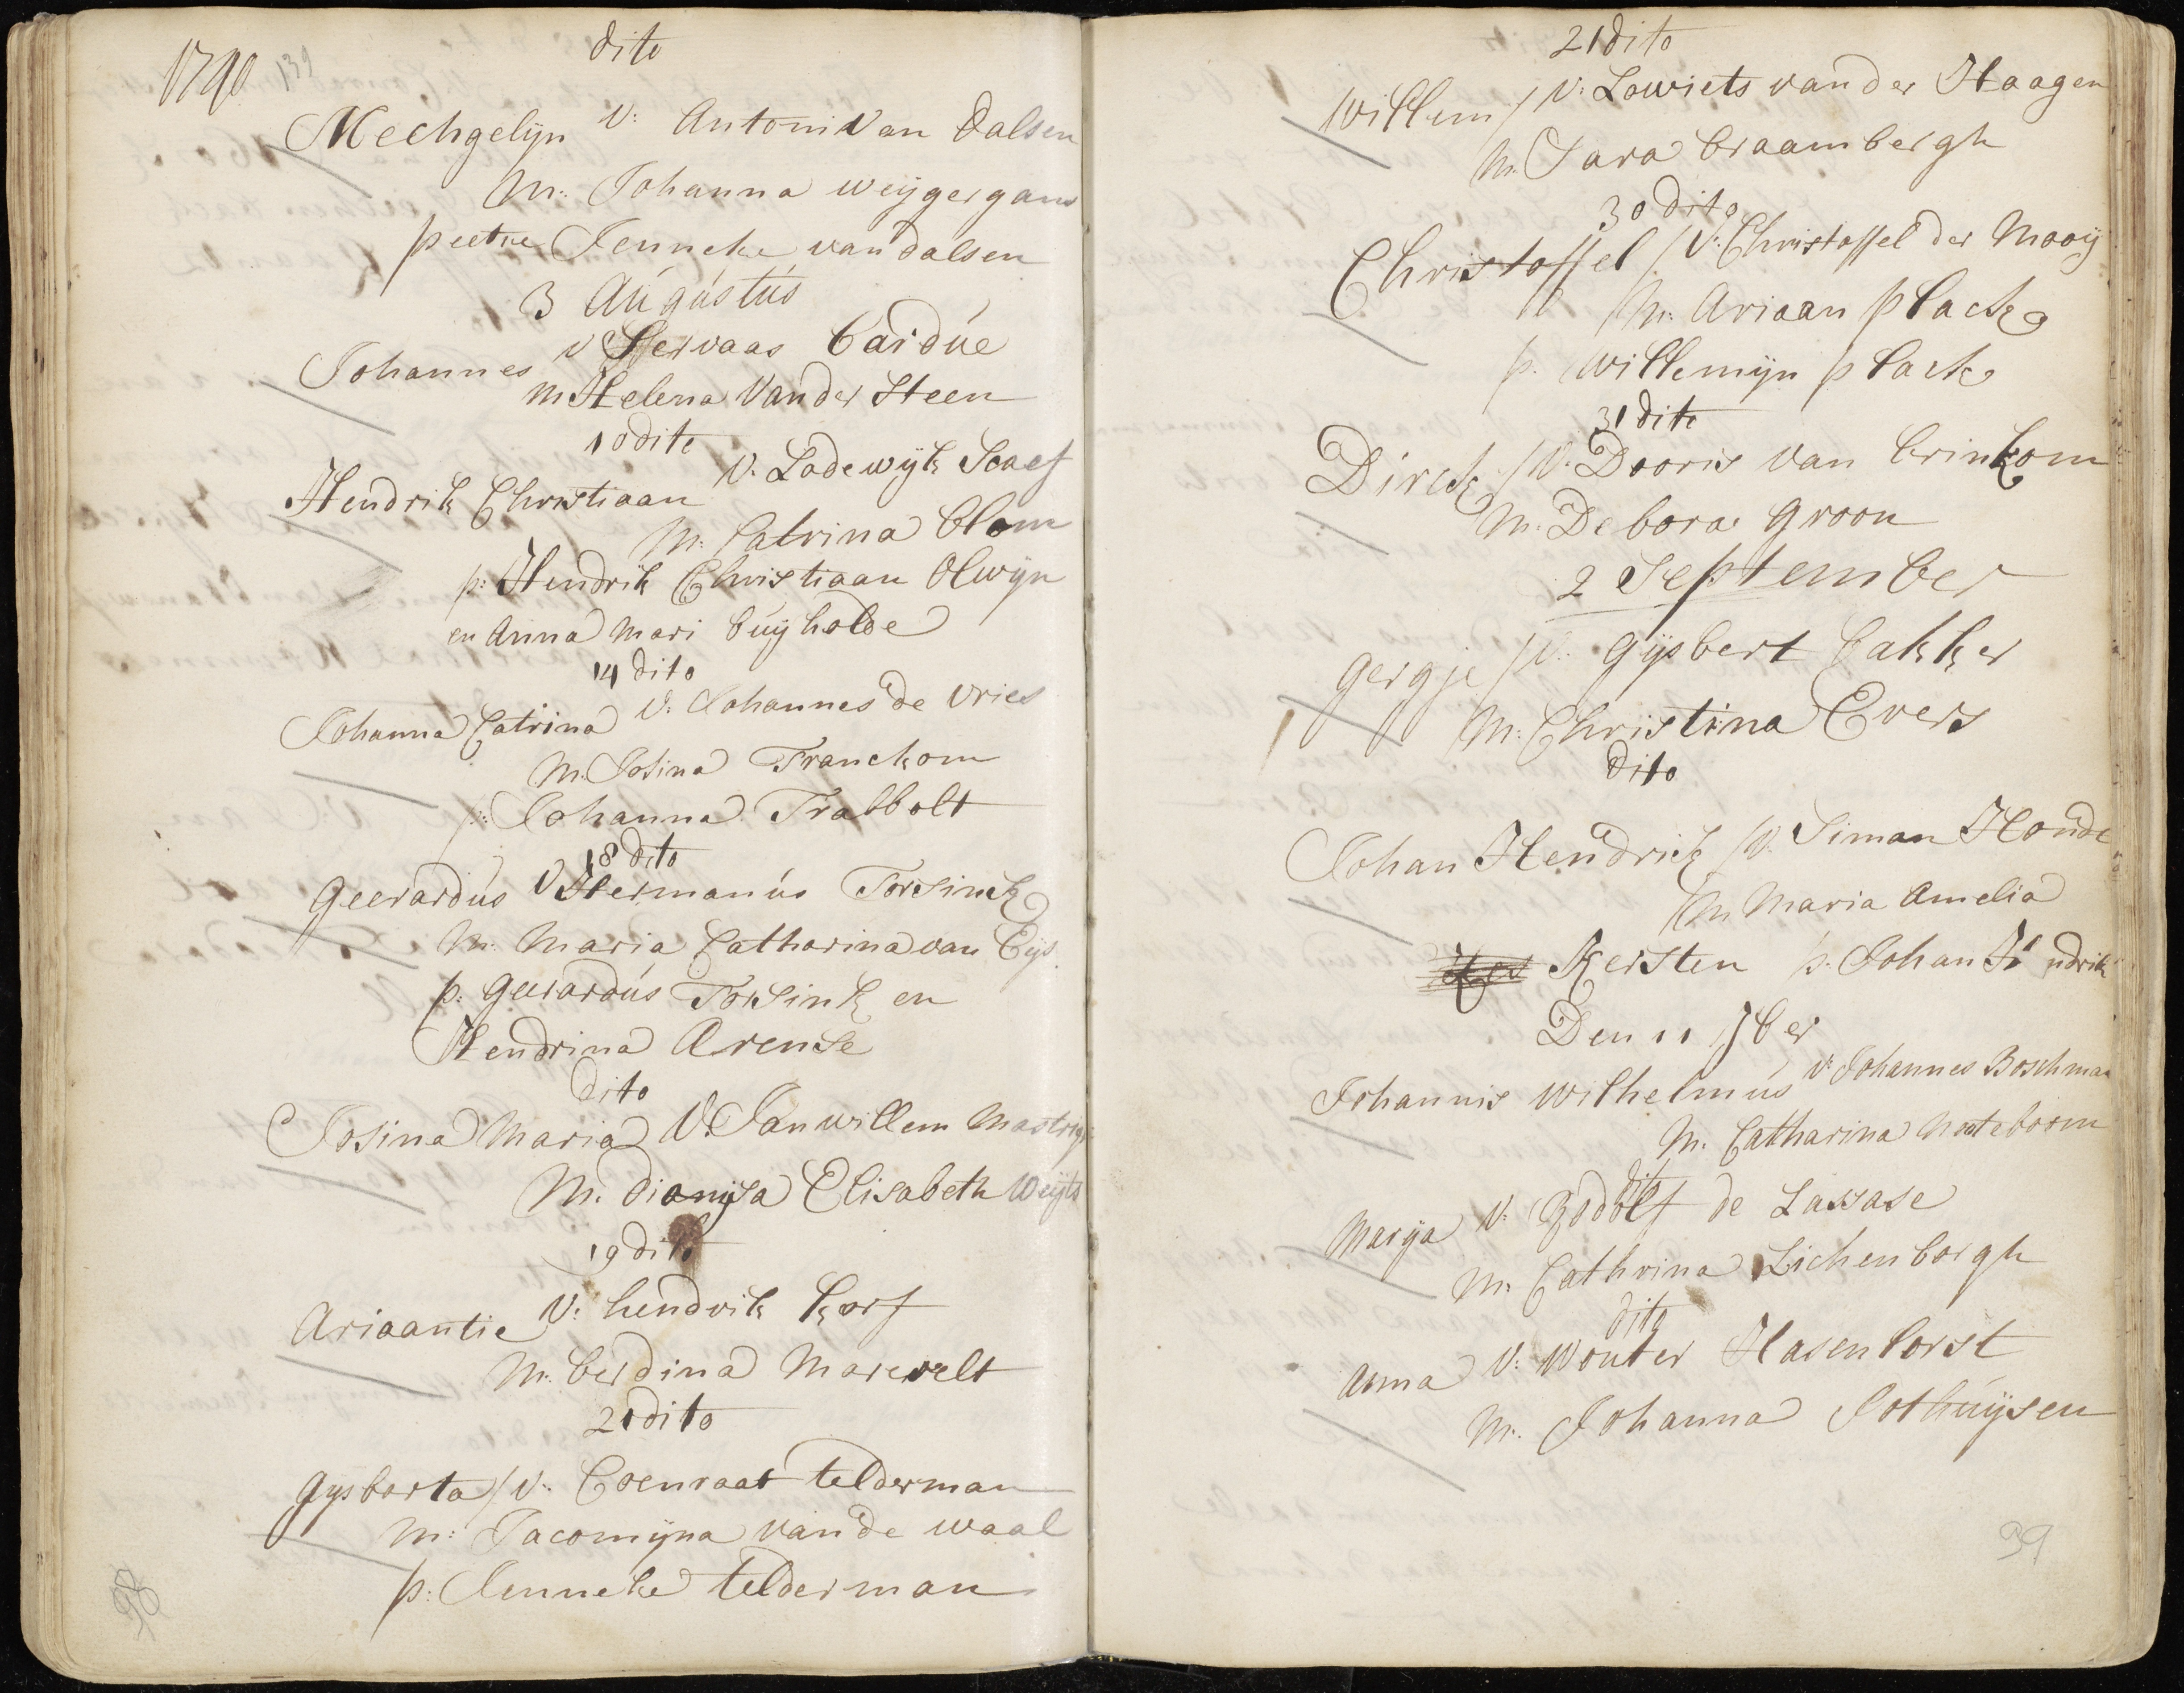 1790 139
dito
Mechgelijn V: Antoni Van Dalsen
M: Johanna weijgergans
peetie Jenneke van dalsen
3 Augústús
Johannes v Servaas Cardúe
M Helena Vander Steen
10 dito
Hendrik Christiaan V. Lodewijk Scaef
M: Catrina Blom
p: Hendrik Christiaan Olwijn
en Anna Mari búijholde
14 dito
Johanna Catrina V: Johannes de Vries
M. Josina Franckom
p: Johanna Trabbolt
18 dito
Geerardús V Hermanús Torsinck
M: Maria Catharina van Eijs
p: Geerardús Torsink en
Hendrina Arense
dito
Josina Maria V. Jan willem Mastrig
M. Dionijsa Elisabeth Weijts
19 dito
Ariaantie V: hendrik korf
M. berdina Marevelt
20 dito
Gijsberta / V: Coenraat telderman
M: Jacomijna van de waal
p: Jenneke telderman
98
21 dito
Willem / V: Lowiets van der Haagen
M. Sara braambergh
30 dito
Christoffel / V: Christoffel der Mooij
M: Ariaan plack
p. Willemijn plack
31 dito
Dirck / V. Dooris van brinkom
M. Debora groon
2 September
Gergje / V: Gijsbert Bakker
M: Christina Evers
dito
Johan Hendrick / V. Siman Honde
M Maria Amelia
Kersten p. Johan Hendrik
Den 11 7ber
Johannis Wilhelmús V: Johannes Boschman
M. Catharina Noteboom
dito
Marija V. Godolf de Lassase
M. Cathrina Lichenborgh
dito
Anna V: Wouter Hasenborst
M. Johanna Jothúijsen
99